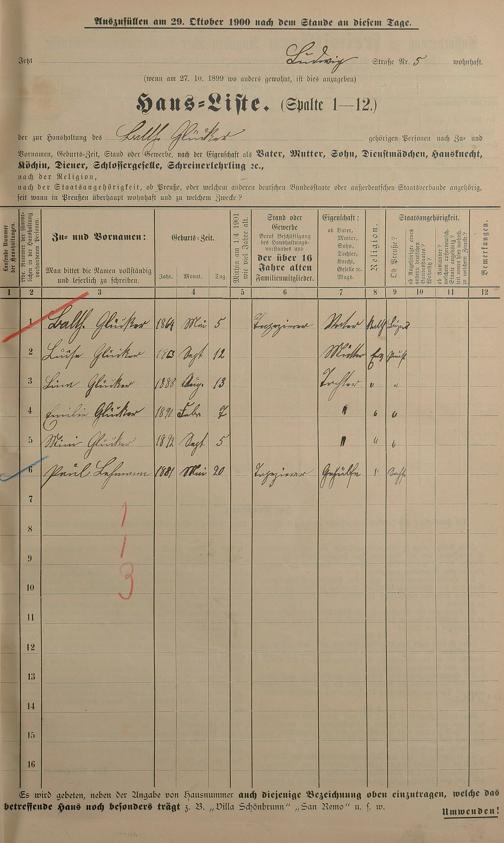 Auszufüllen am 29. Oktober 1900 nach dem Stande an diesem Tage.
Jetzt Ludwig Straße Nr. 5 wohnhaft.
(wenn am 27. 10. 1899 wo anders gewohnt, ist dies anzugeben)
Haus-Liste. (Spalte 1—12.)
der zur Haushaltung des Balth. Glücker gehörigen Personen nach Zu- und
Vornamen, Geburts-Zeit, Stand oder Gewerbe, nach der Eigenschaft als Vater, Mutter, Sohn, Dienstmädchen, Hausknecht,
Köchin, Diener, Schlossergeselle, Schreinerlehrling ec.,
nach der Religion,
nach der Staatsangehörigkeit, ob Preuße, oder welchem anderen deutschen Bundesstaate oder außerdeutschen Staatsverbande angehörig,
seit wann in Preußen überhaupt wohnhaft und zu welchem Zwecke?
Zu- und Vornamen:
Man bittet die Namen vollständig
und leserlich zu schreiben.
Geburts-Zeit.
Jahr. Monat. Tag
Stand oder
Gewerbe
der über 16
Jahre alten
Familienmitglieder.
Eigenschaft:
ob Vater,
Mutter,
Sohn,
Tochter,
Knecht,
Geselle oc.
Magd.
Religion.
Staatsangehörigkeit.
Ob Preuße?
Bemerkungen.
1 2 3 4 5 6 7 8 9 10 11 12
1 Balth. Glücker 1864 Mai 5 Tapezierer Vater Kath
2 Luise Glücker Sept 12 Mutter Ev
3 Lina Glücker 1888 Aug. 13 Tochter " "
4 Emilie Glücker 1891 Febr 7 " " "
5 Glücker Sept 5 " " "
6 Paul Lehmann 1881 Mai 20 Tapezierer Gehülfe "
7
8
9
10
11
12
13
14
15
16
1
1
3
Es wird gebeten, neben der Angabe von Hausnummer auch diejenige Bezeichnung oben einzutragen, welche das
betreffende Haus noch besonders trägt z. B. „Villa Schönbrunn" „San Remo" u. s. w.
Umwenden!